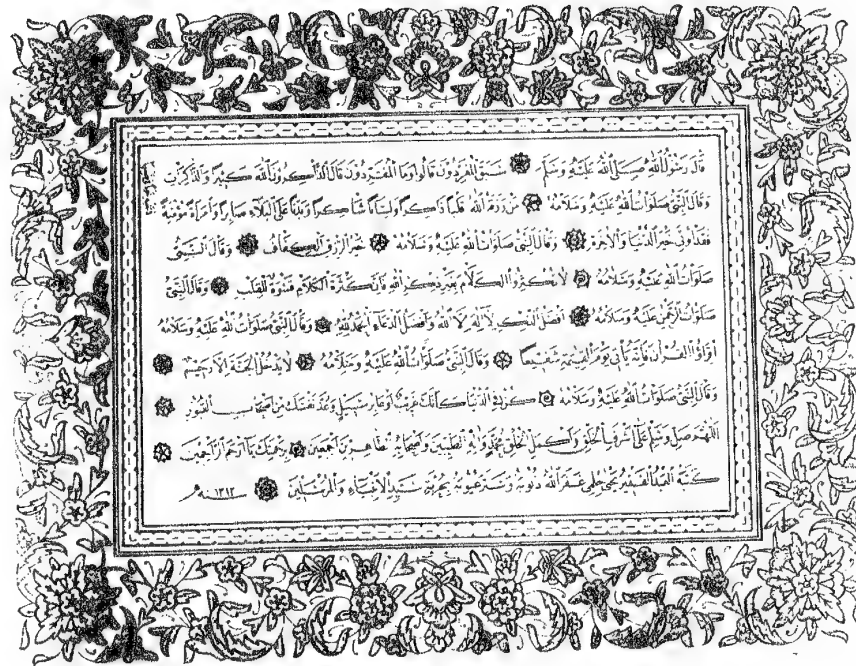 قَالَ رَسُولُ اللّٰهِ صَلَّى اللّٰهُ عَلَيْهِ وَسَلَّمَ سَبَقَ الْمُفَرِّدُونَ قَالُوا وَمَا الْمُفَرِّدُونَ قَالَ الذَّاكِرُونَ اللّٰهَ كَثِيرًا وَالذَّاكِرَاتِ
وَقَالَ النَّبِيُّ صَلَوَاتُ اللّٰهِ عَلَيْهِ وَسَلَامُهُ مَنْ رَزَقَهُ اللّٰهُ قَلْبًا ذَاكِرًا وَلِسَانًا شَاكِرًا وَبَدَنًا عَلَى الْبَلَاءِ صَابِرًا وَامْرَأَةً مُؤْمِنَةً
فَقَدْ أُوتِيَ خَيْرَ الدُّنْيَا وَالْآخِرَةِ وَقَالَ النَّبِيُّ صَلَوَاتُ اللّٰهِ عَلَيْهِ وَسَلَامُهُ خَيْرُ الرِّزْقِ الْكَفَافُ وَقَالَ النَّبِيُّ
صَلَوَاتُ اللّٰهِ عَلَيْهِ وَسَلَامُهُ لَا تُكْثِرُوا الْكَلَامَ بِغَيْرِ ذِكْرِ اللّٰهِ فَاِنَّ كَثْرَةَ الْكَلَامِ قَسْوَةٌ لِلْقَلْبِ وَقَالَ النَّبِيُّ
صَلَوَاتُ الرَّحْمٰنِ عَلَيْهِ وَسَلَامُهُ اَفْضَلُ الذِّكْرِ لَا اِلٰهَ اِلَّا اللّٰهُ وَاَفْضَلُ الدُّعَاءِ الْحَمْدُ لِلّٰهِ وَقَالَ النَّبِيُّ صَلَوَاتُ اللّٰهِ عَلَيْهِ وَسَلَامُهُ
الْقُرْاٰنَ فَاِنَّهُ يَأْتِي يَوْمَ الْقِيٰمَةِ شَفِيعًا وَقَالَ النَّبِيُّ صَلَوَاتُ اللّٰهِ عَلَيْهِ وَسَلَامُهُ لَا يَدْخُلُ الْجَنَّةَ اِلَّا رَحِيمٌ
وَقَالَ النَّبِيُّ صَلَوَاتُ اللّٰهِ عَلَيْهِ وَسَلَامُهُ كُنْ فِي الدُّنْيَا كَاَنَّكَ غَرِيبٌ اَوْ عَابِرُ سَبِيلٍ وَعُدَّ نَفْسَكَ مِنْ اَصْحَابِ الْقُبُورِ
اَللّٰهُمَّ صَلِّ وَسَلِّمْ عَلَى اَشْرَفِ الْخَلْقِ اَكْمَلِ الْخَلْقِ مُحَمَّدٍ وَاٰلِهِ الطَّيِّبِينَ وَاَصْحَابِهِ الطَّاهِرِينَ اَجْمَعِينَ بِرَحْمَتِكَ يَا اَرْحَمَ الرَّاحِمِينَ
كَتَبَهُ الْعَبْدُ الْفَقِيرُ يَحْيَى حِلْمِي غَفَرَ اللّٰهُ ذُنُوبَهُ وَسَتَرَ عُيُوبَهُ بِحُرْمَةِ سَيِّدِ الْاَنْبِيَاءِ وَالْمُرْسَلِينَ سنه ١٣١٢